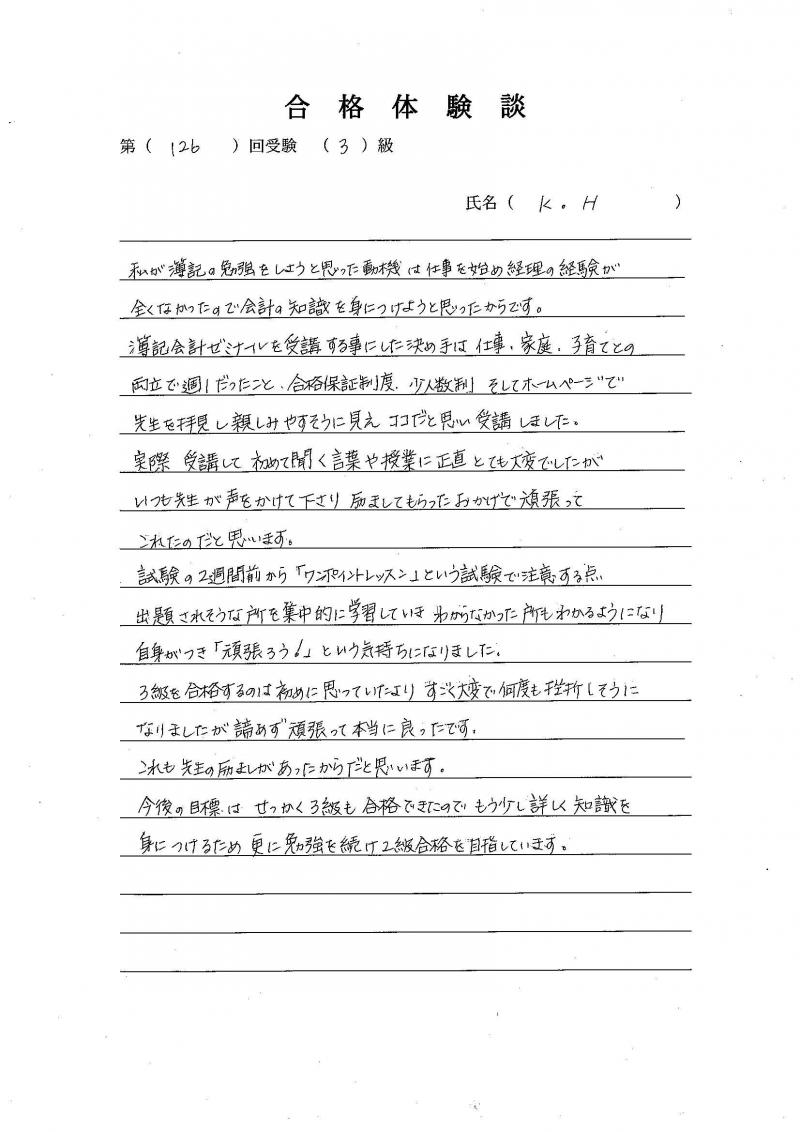 合格体験談
第（ 126 ）回受験 （ 3 ）級
氏名（ K.H ）
私が簿記の勉強をしようと思った動機は仕事を始め経理の経験が
全くなかったので会計の知識を身につけようと思ったからです。
簿記会計ゼミナールを受講する事にした決め手は仕事、家庭、子育てとの
両立で週1だったこと、合格保証制度、少人数制 そしてホームページで
先生を拝見し親しみやすそうに見え ココだと思い受講しました。
実際 受講して 初めて聞く言葉や授業に正直とても大変でしたが
いつも先生が声をかけて下さり 励ましてもらったおかげで頑張って
これたのだと思います。
試験の2週間前から「ワンポイントレッスン」という試験で注意する点
出題されそうな所を集中的に学習していき わからなかった所もわかるようになり
自身がつき「頑張ろう!」という気持ちになりました。
3級を合格するのは初めに思っていたより すごく大変で何度も挫折しそうに
なりましたが 諦めず頑張って本当に良ったです。
これも先生の励ましがあったからだと思います。
今後の目標は せっかく3級も合格できたので もう少し詳しく知識を
身につけるため 更に勉強を続け2級合格を目指しています。